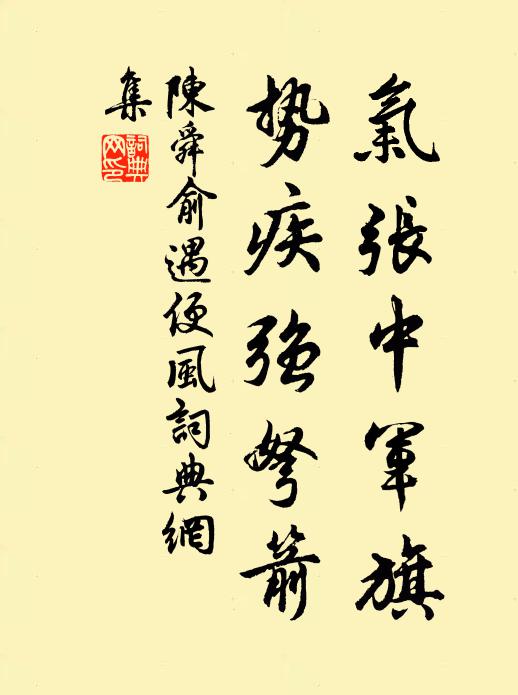 氣張中軍旗
勢疾強弩箭
陳舜俞遇便風詞典網
集
詞典網印